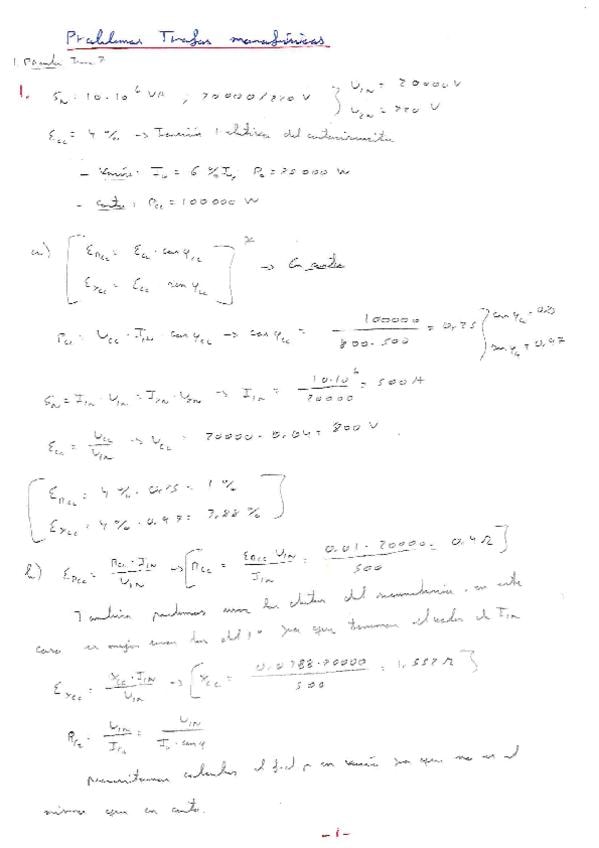 Problemas Trafos monofásicos
1.
S_N = 10·10^6 VA ; 20000/220 V } U_1N = 20000 V
U_2N = 220 V
ε_cc = 4 % → Tensión relativa del cortocircuito
- Vacío: I_0 = 6 % I_N P_0 = 25000 W
- corto: P_cc = 100000 W
a) [ ε_Rcc = ε_cc · cos φ_cc
ε_Xcc = ε_cc · sen φ_cc ] → En corto
P_cc = U_cc · I_1N · cos φ_cc → cos φ_cc = 100000 / 800·500 = 0,25 } cos φ_cc = 0,25
sen φ_cc = 0,97
S_N = I_1N · U_1N = I_2N · U_2N → I_1N = 10·10^6 / 20000 = 500 A
ε_cc = U_cc / U_1N → U_cc = 20000 · 0,04 = 800 V
[ ε_Rcc = 4 % · 0,25 = 1 %
ε_Xcc = 4 % · 0,97 = 3,88 % ]
b) ε_Rcc = R_cc · I_1N / U_1N → [ R_cc = ε_Rcc U_1N / I_1N = 0,01 · 20000 / 500 = 0,4 Ω ]
También podemos usar los datos del secundario, en este
caso es mejor usar los del 1º ya que tenemos el valor de I_1N
ε_Xcc = X_cc · I_1N / U_1N → [ X_cc = 0,0388·20000 / 500 = 1,552 Ω ]
R_Fe = U_1N / I_Fe = U_1N / I_0 · cos φ
necesitamos calcular el f.d.p en vacío ya que no es el
mismo que en corto.
- 1 -